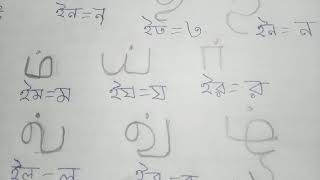 ইন=ন্ ইত=ত ইন=ন
ம் ய் ர்
ইম=ম ইয=য ইর=র
ல் வ் ழ்
ইল=ল